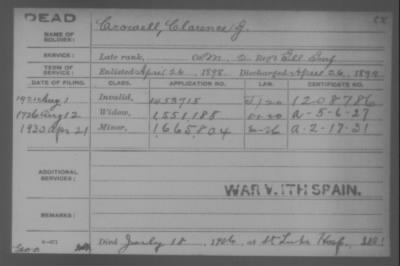 DEAD
NAME OF SOLDIER: Crowell, Clarence J.
SERVICE: Late rank, 2 Reg't Ill Inf
TERM OF SERVICE: Enlisted April 26, 1898. Discharged April 26, 1899
DATE OF FILING. CLASS. APPLICATION NO. LAW. CERTIFICATE NO.
Aug 1 Invalid, 1208786
1926 Aug 12 Widow, 1,551,188 a-5-6-27
1930 Apr 21 Minor, 1,665,804 a-2-17-31
ADDITIONAL SERVICES:
WAR WITH SPAIN.
REMARKS:
Died July 18, 1926, at St Luke Hosp., Ill